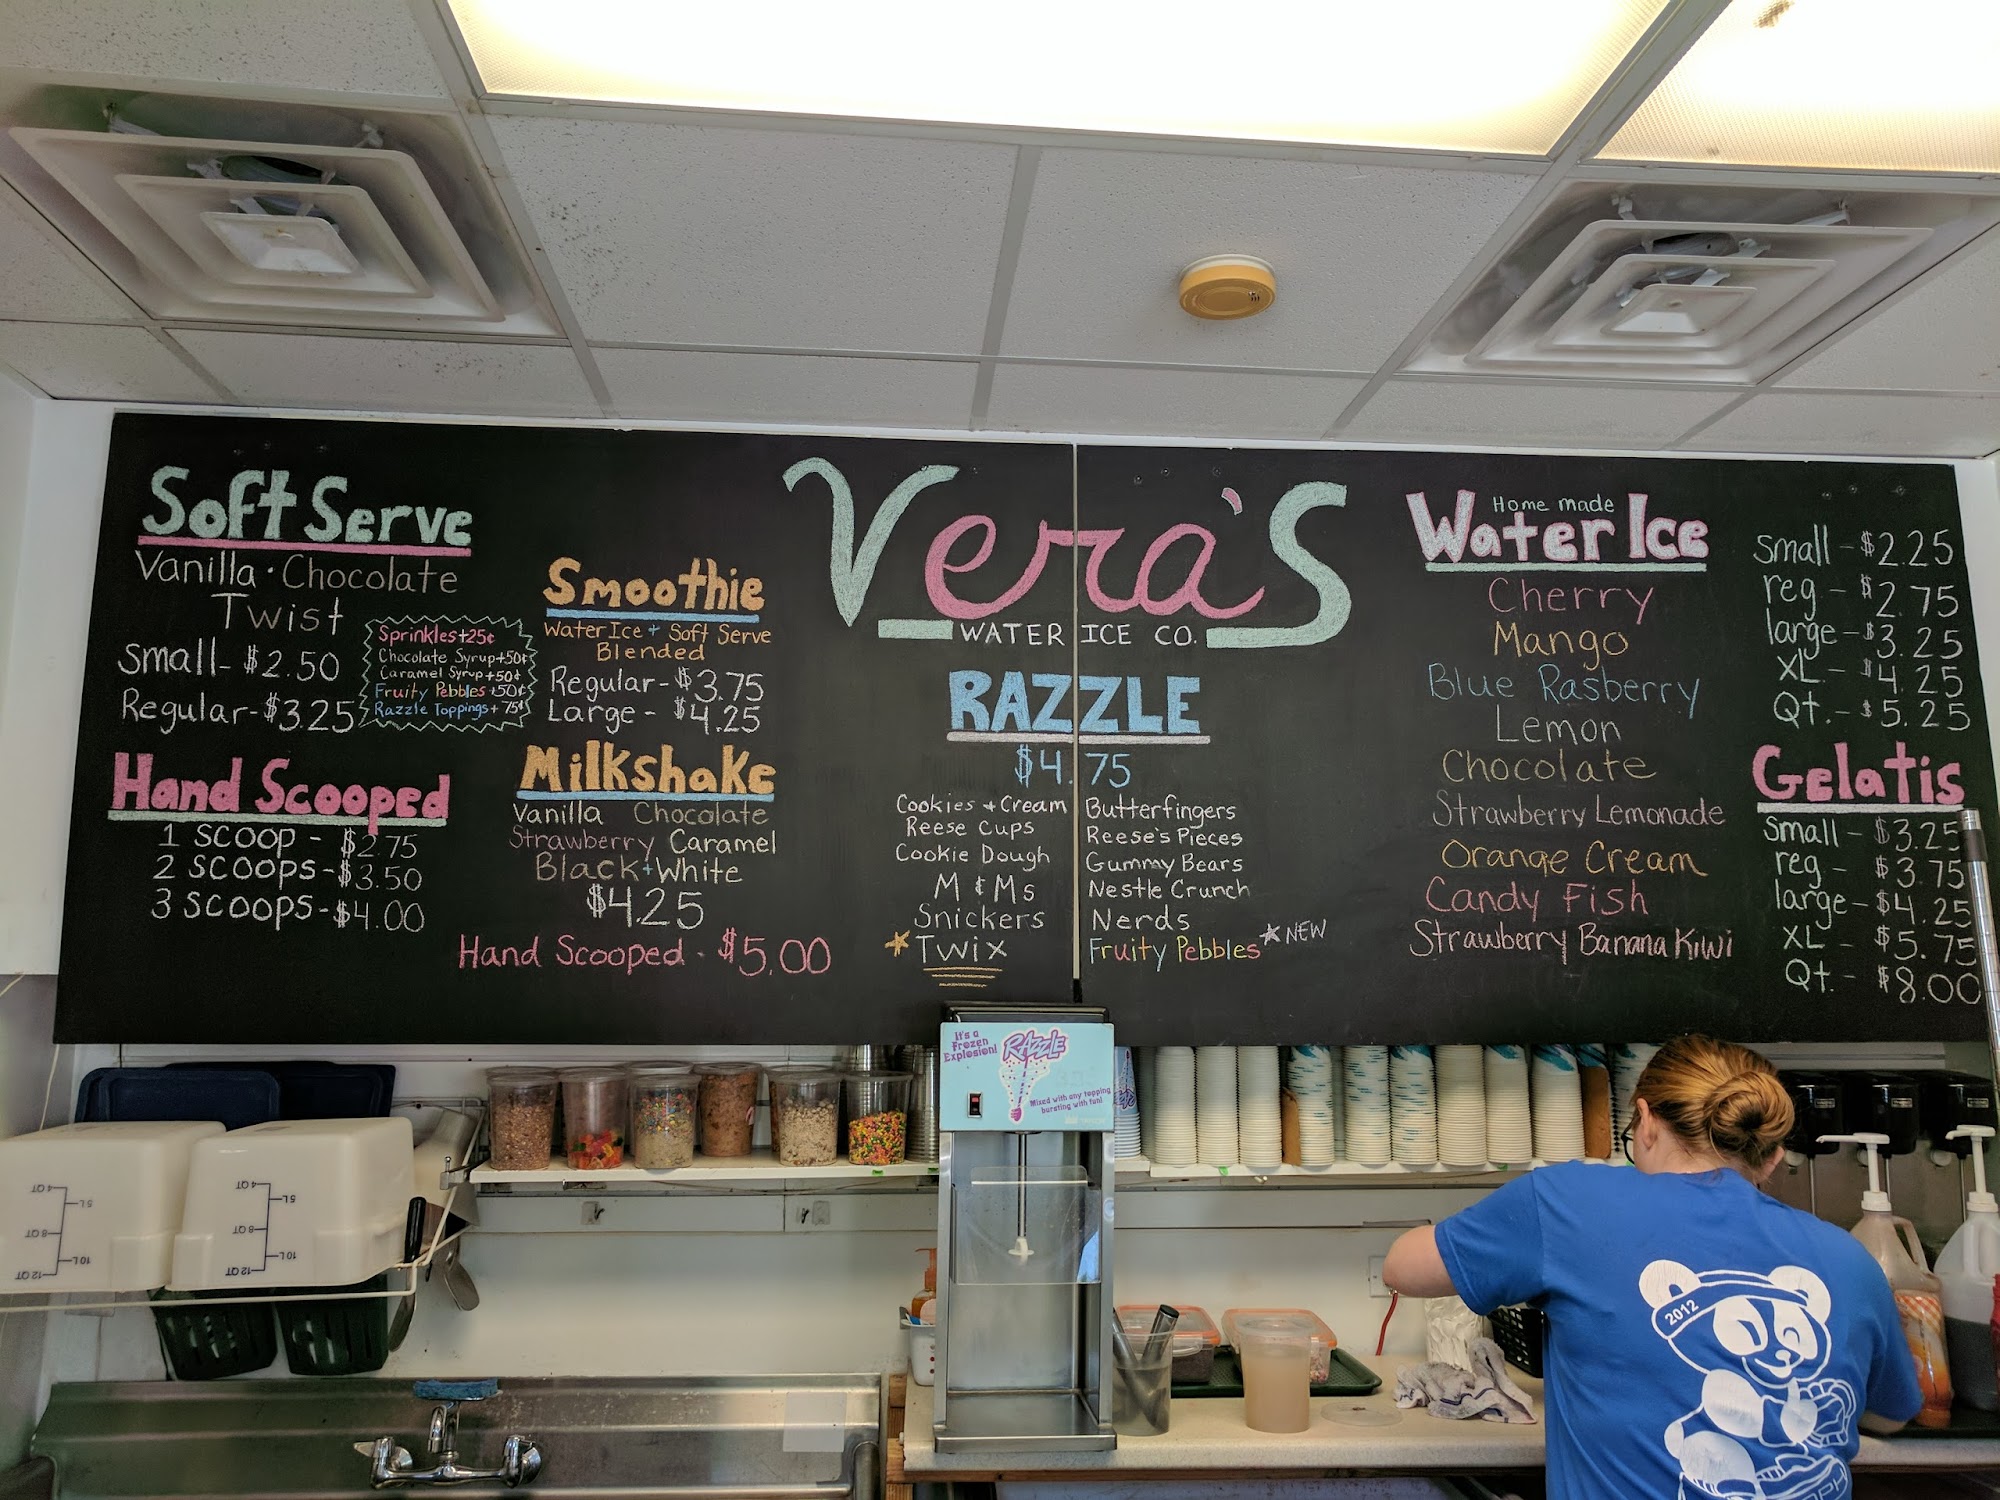 Soft Serve
Vanilla · Chocolate
Twist
Small - $2.50
Regular - $3.25
Sprinkles +25¢
Chocolate Syrup +50¢
Caramel Syrup +50¢
Fruity Pebbles +50¢
Razzle Toppings + 75¢
Hand Scooped
1 SCOOP - $2.75
2 SCOOPS - $3.50
3 SCOOPS - $4.00
Smoothie
Water Ice + Soft Serve
Blended
Regular - $3.75
Large - $4.25
Milkshake
Vanilla Chocolate
Strawberry Caramel
Black + White
$4.25
Hand Scooped - $5.00
Vera's
WATER ICE CO.
RAZZLE
$4.75
Cookies + Cream
Reese Cups
Cookie Dough
M & Ms
Snickers
Twix
Butterfingers
Reese's Pieces
Gummy Bears
Nestle Crunch
Nerds
Fruity Pebbles NEW
Home made
Water Ice
Cherry
Mango
Blue Rasberry
Lemon
Chocolate
Strawberry Lemonade
Orange Cream
Candy Fish
Strawberry Banana Kiwi
small - $2.25
reg - $2.75
large - $3.25
XL - $4.25
Qt. - $5.25
Gelatis
small - $3.25
reg - $3.75
large - $4.25
XL - $5.75
Qt. - $8.00
It's a
Frozen
Explosion!
RAZZLE
Mixed with any topping
bursting with fun!
4 QT
5L
8 QT
10L
12 QT
4 QT
5L
8 QT
10L
12 QT
2012